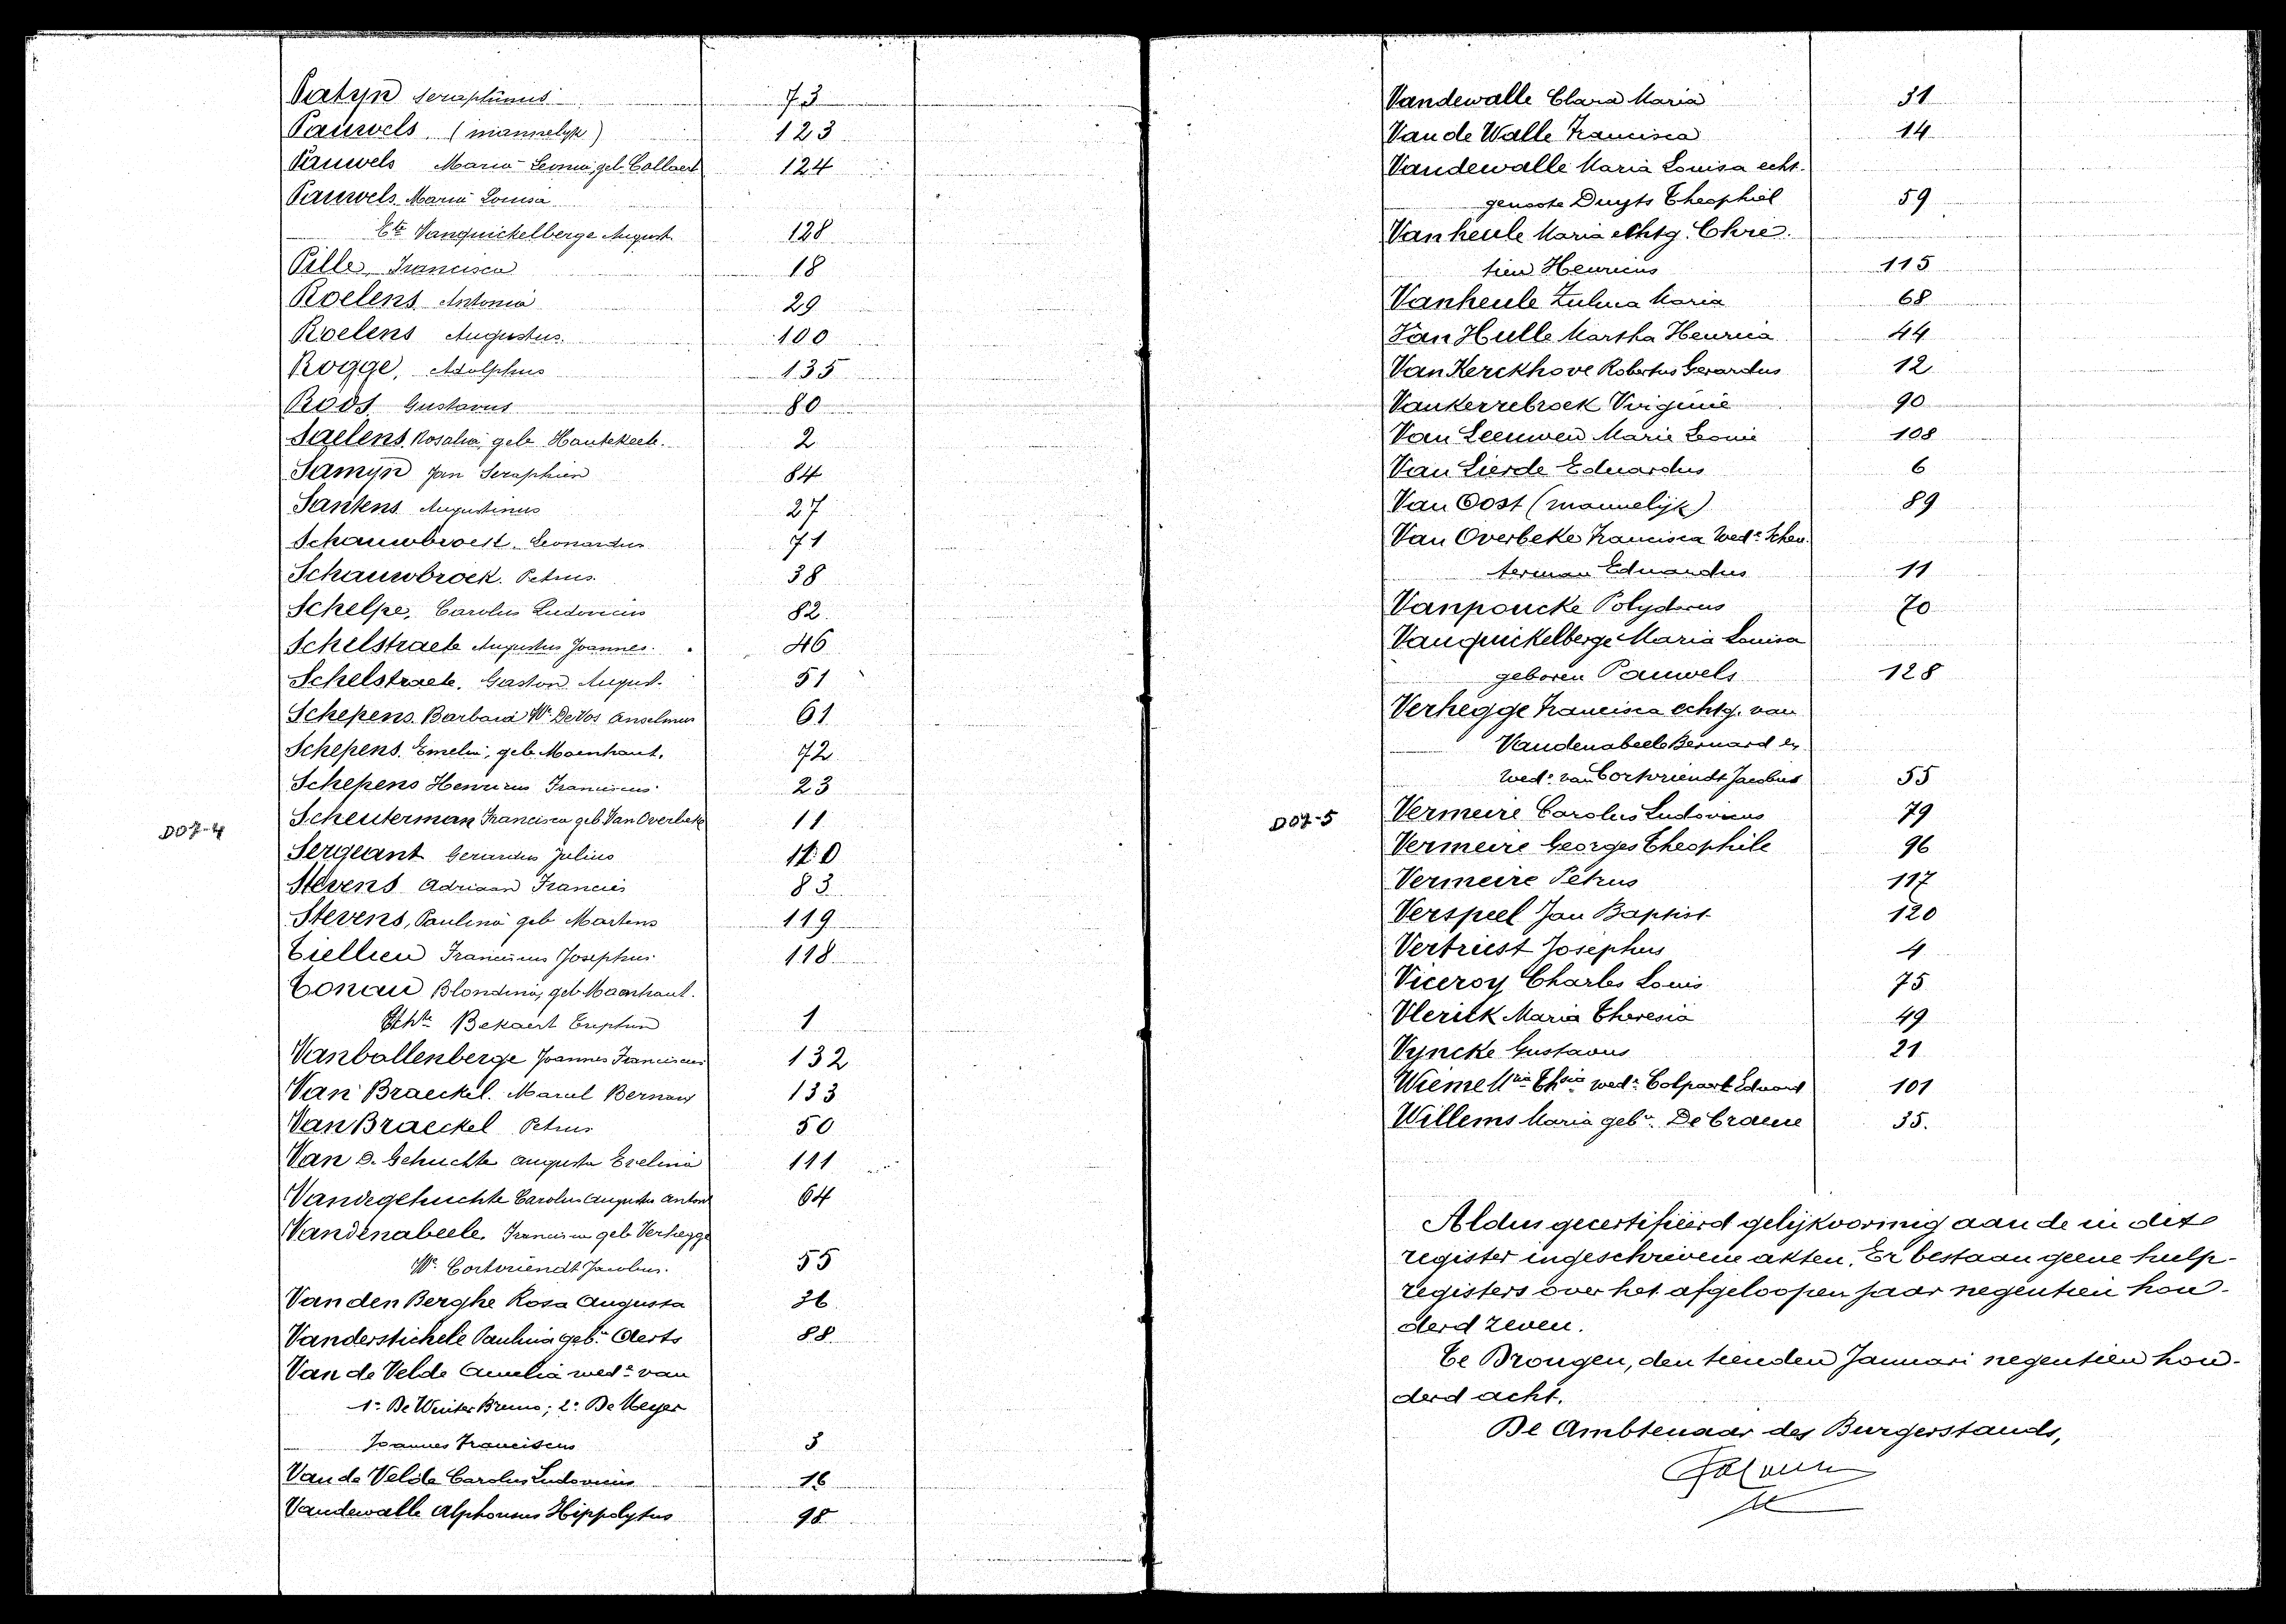 Patyn Seraphinus 73
Pauwels (mannelyk) 123
Pauwels Maria Leonia, geb. Collaert 124
Pauwels Maria Louisa
Ete Vanquickelberge August. 128
Pille Francisca 18
Roelens Antonia 29
Roelens Augustus. 100
Rogge, Adolphus 135
Roos Gustavus 80
Saelens Rosalia, geb. Hautekeete. 2
Samyn Jan Seraphien 84
Santens Augustinus 27
Schauwbroeck Leonardus 71
Schauwbroek. Petrus. 38
Schelpe, Carolus Ludovicus 82
Schelstraete Augustus Joannes. 46
Schelstraete. Gaston August. 51
Schepens Barbara We De Vos Anselmus 61
Schepens. Emelia, geb. Maenhaut. 72
Schepens Henricus Franciscus. 23
DO7-4
Scheuterman Francisca geb. Van Overbeke 11
Sergeant Gerardus Julius 110
Stevens Adriaan Francies 83
Stevens, Paulina geb Martens 119
Tiellien Franciscus Josephus. 118
Tonau Blondina, geb Maenhaut.
Echte Bekaert 1
Vanballenberge Joannes Franciscus 132
Van Braeckel. Marcel Bernard 133
Van Braeckel Petrus 50
Van D. Gehuchte Augusta Evelina 111
Vandegehuchte Carolus Augustus Anton 64
Vandenabeele, Francisca geb Verhegge
We Cortvriendt Jacobus. 55
Van den Berghe Rosa Augusta 36
Vanderstichele Paulina geb.n Aerts 88
Van de Velde Amelia wede van
1e De Winter Bruno; 2e De Meyer
Joannes Franciscus 3
Van de Velde Carolus Ludovicus 16
Vandewalle Alphonsus Hippolytus 98
Vandewalle Clara Maria 31
Van de Walle Francisca 14
Vandewalle Maria Louisa echt-
genoote Duyts Theophiel 59
Vanheule Maria echtg. Chre-
tien Henricus 115
Vanheule Zulma Maria 68
Van Hulle Martha Henrica 44
Van Kerckhove Robertus Gerardus 12
Vankerrebroek Virginie 90
Van Leeuwen Marie Leonie 108
Van Lierde Eduardus 6
Van Oost (mannelijk) 89
Van Overbeke Francisca Wede Scheu-
terman Eduardus 11
Vanpoucke Polydorus 70
Vanquickelberge Maria Louisa
geboren Pauwels 128
Verhegge Francisca echtg. van
Vandenabeele Bernard en
wede van Cortvriendt Jacobus 55
DO7-5
Vermeire Carolus Ludovicus 79
Vermeire Georges Theophile 96
Vermeire Petrus 117
Verspeel Jan Baptist 120
Vertriest Josephus 4
Viceroy Charles Louis 75
Vlerick Maria Theresia 49
Vyncke Gustavus 21
Wieme Mria Thsia wede Colpaert Eduard 101
Willems Maria geb.n De Craene 35.
Aldus gecertifieerd gelijkvormig aan de in dit
register ingeschrevene akten. Er bestaan geene hulp-
registers over het afgeloopen jaar negentien hon-
derd zeven.
Te Drongen, den tienden Januari negentien hon-
derd acht.
De Ambtenaar des Burgerstands,